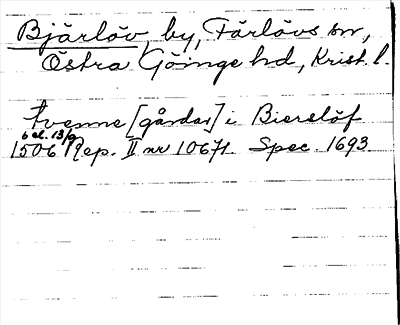 Bjärlöv, by, Färlövs sn,
Östra Göinge hd, Krist. l.
tvenne [gårdar] i Bierslöf
6 el. 13/9
1506 Rep. II nr 10671. Spec. 1693.